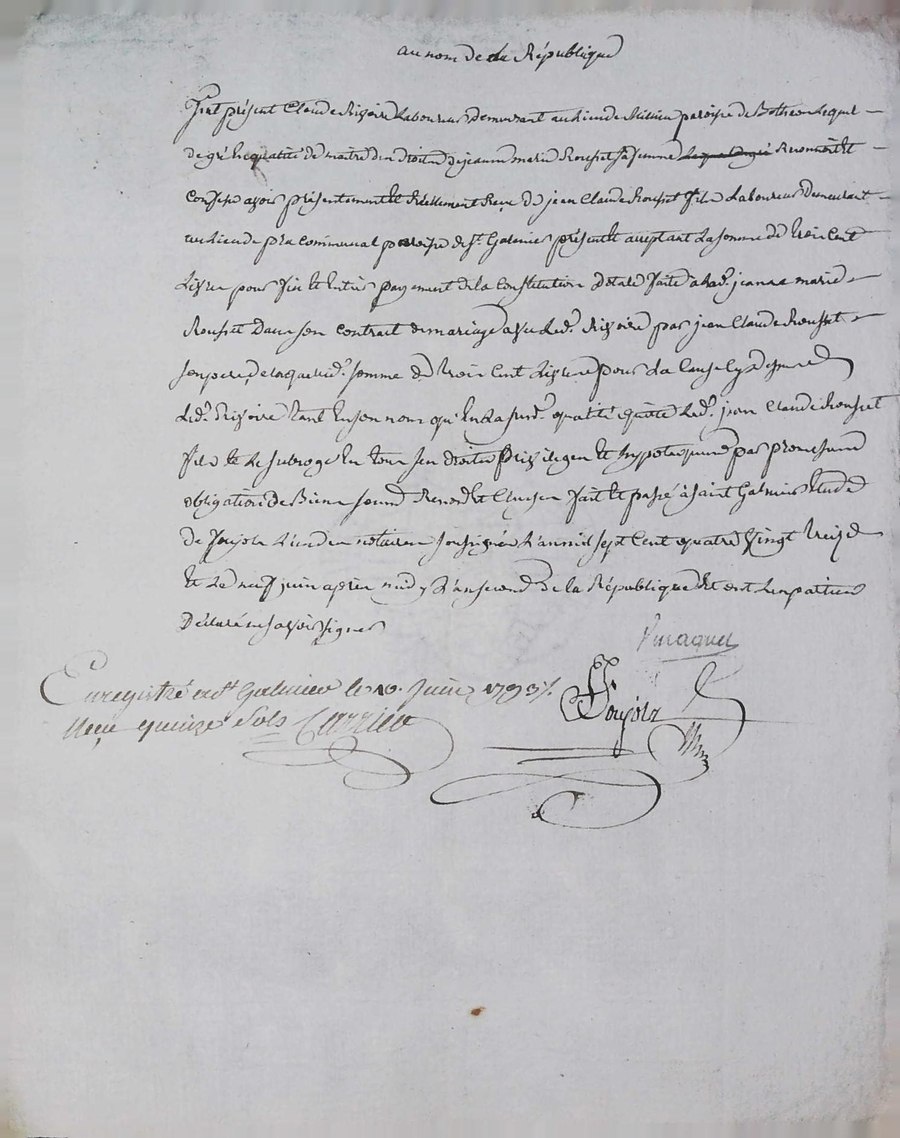 au nom de la République
fut présent Claude Rigoire Laboureur demeurant au lieu de paroisse de Bothéon Lequel
de gré En qualité de maitre des droits de jeanne marie Rousset sa femme Lequel de gré Reconnoit et
Confesse avoir présentement et Réellement Reçu de jean Claude Rousset fils Laboureur Demeurant
au lieu de pra Communal paroisse de St. Galmier présent et aceptant La somme de trois Cent
Livres pour fin et Entier payement de la Constitution Dotale faite à lad. jeanne marie
Rousset Dans son contrat de mariage avec Led. Rigoire par jean Claude Rousset
son pere, de laquelle d. somme de trois Cent Livres pour la Cause sy dessus
Led. Rigoire tant En son nom qu'En la susd. qualité quitte Led. jean Claude Rousset
fils et Le subroge En tous ses droits privileges et hypoteques par promesses
obligation de Biens soumis Renond. et Clauses fait et passé à saint Galmier Etude
de Soujola L'un des notaires soussignés L'an mil sept Cent quatre Vingt treize
et Le neuf juin après midy L'an second de la République et ont Les parties
Déclaré ne savoir signer
Soujola
Enregistré a St. Galmier le 10. Juin 1793
Reçu quinze sols